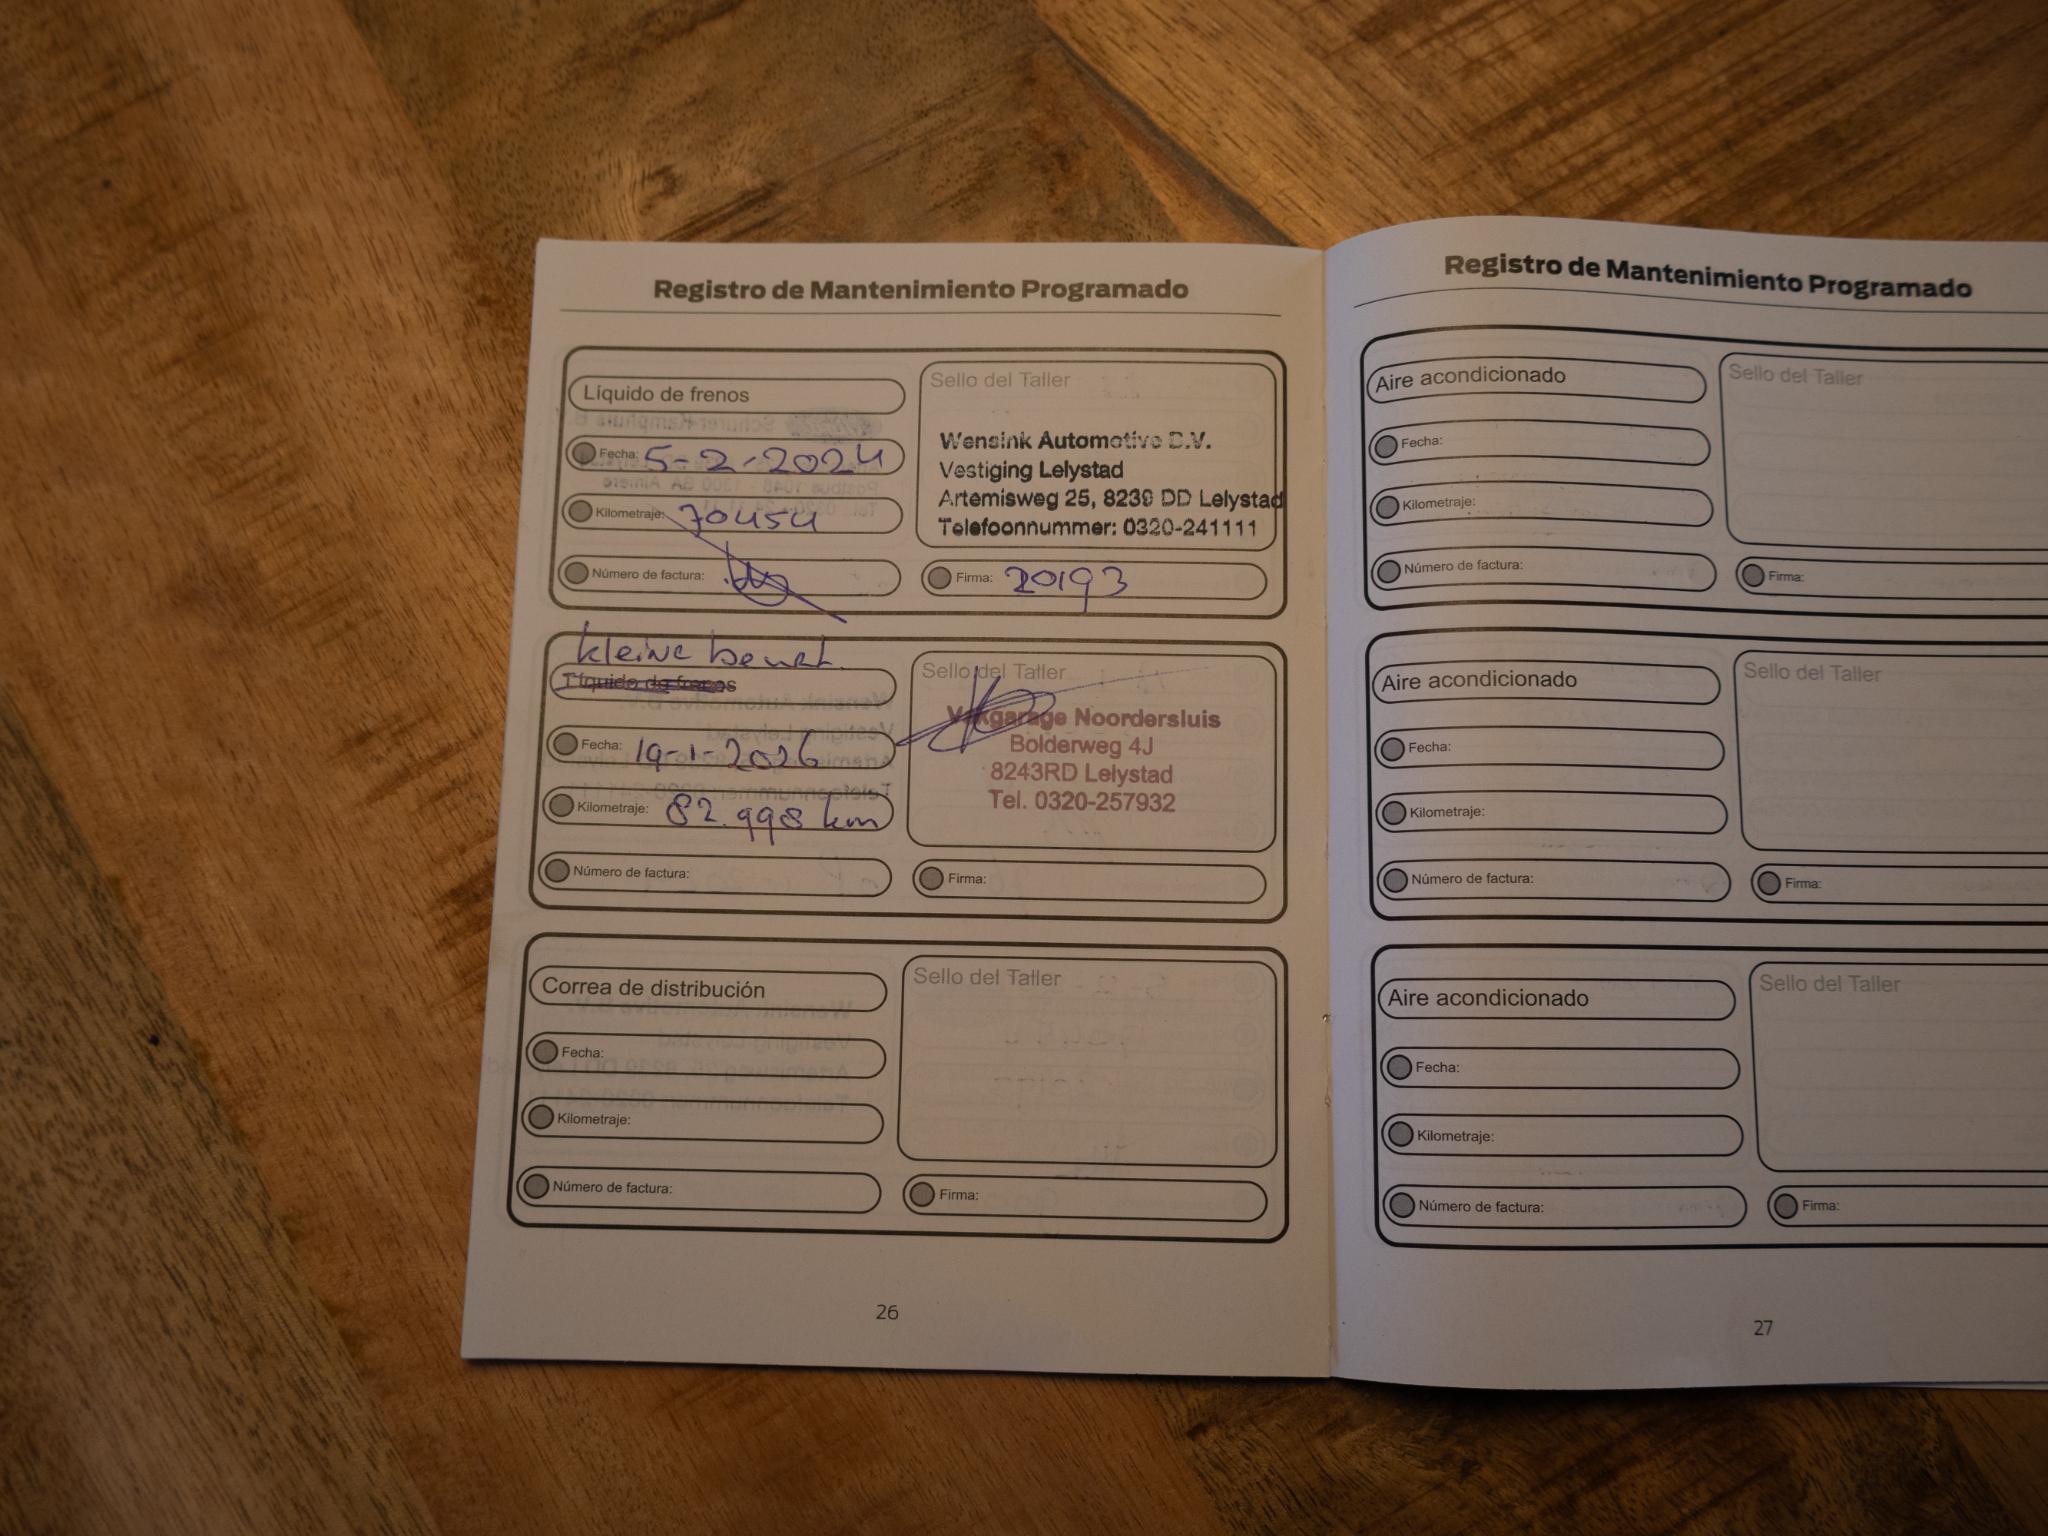 Registro de Mantenimiento Programado
Líquido de frenos
Fecha: 5-2-2024
Kilometraje: 70454
Número de factura:
Sello del Taller
Wensink Automotive B.V.
Vestiging Lelystad
Artemisweg 25, 8239 DD Lelystad
Telefoonnummer: 0320-241111
Firma: 20193
kleine beurt.
Líquido de frenos
Fecha: 19-1-2026
Kilometraje: 82.998 km
Número de factura:
Sello del Taller
Vakgarage Noordersluis
Bolderweg 4J
8243RD Lelystad
Tel. 0320-257932
Firma:
Correa de distribución
Fecha:
Kilometraje:
Número de factura:
Sello del Taller
Firma:
26
Registro de Mantenimiento Programado
Aire acondicionado
Fecha:
Kilometraje:
Número de factura:
Sello del Taller
Firma:
Aire acondicionado
Fecha:
Kilometraje:
Número de factura:
Sello del Taller
Firma:
Aire acondicionado
Fecha:
Kilometraje:
Número de factura:
Sello del Taller
Firma:
27